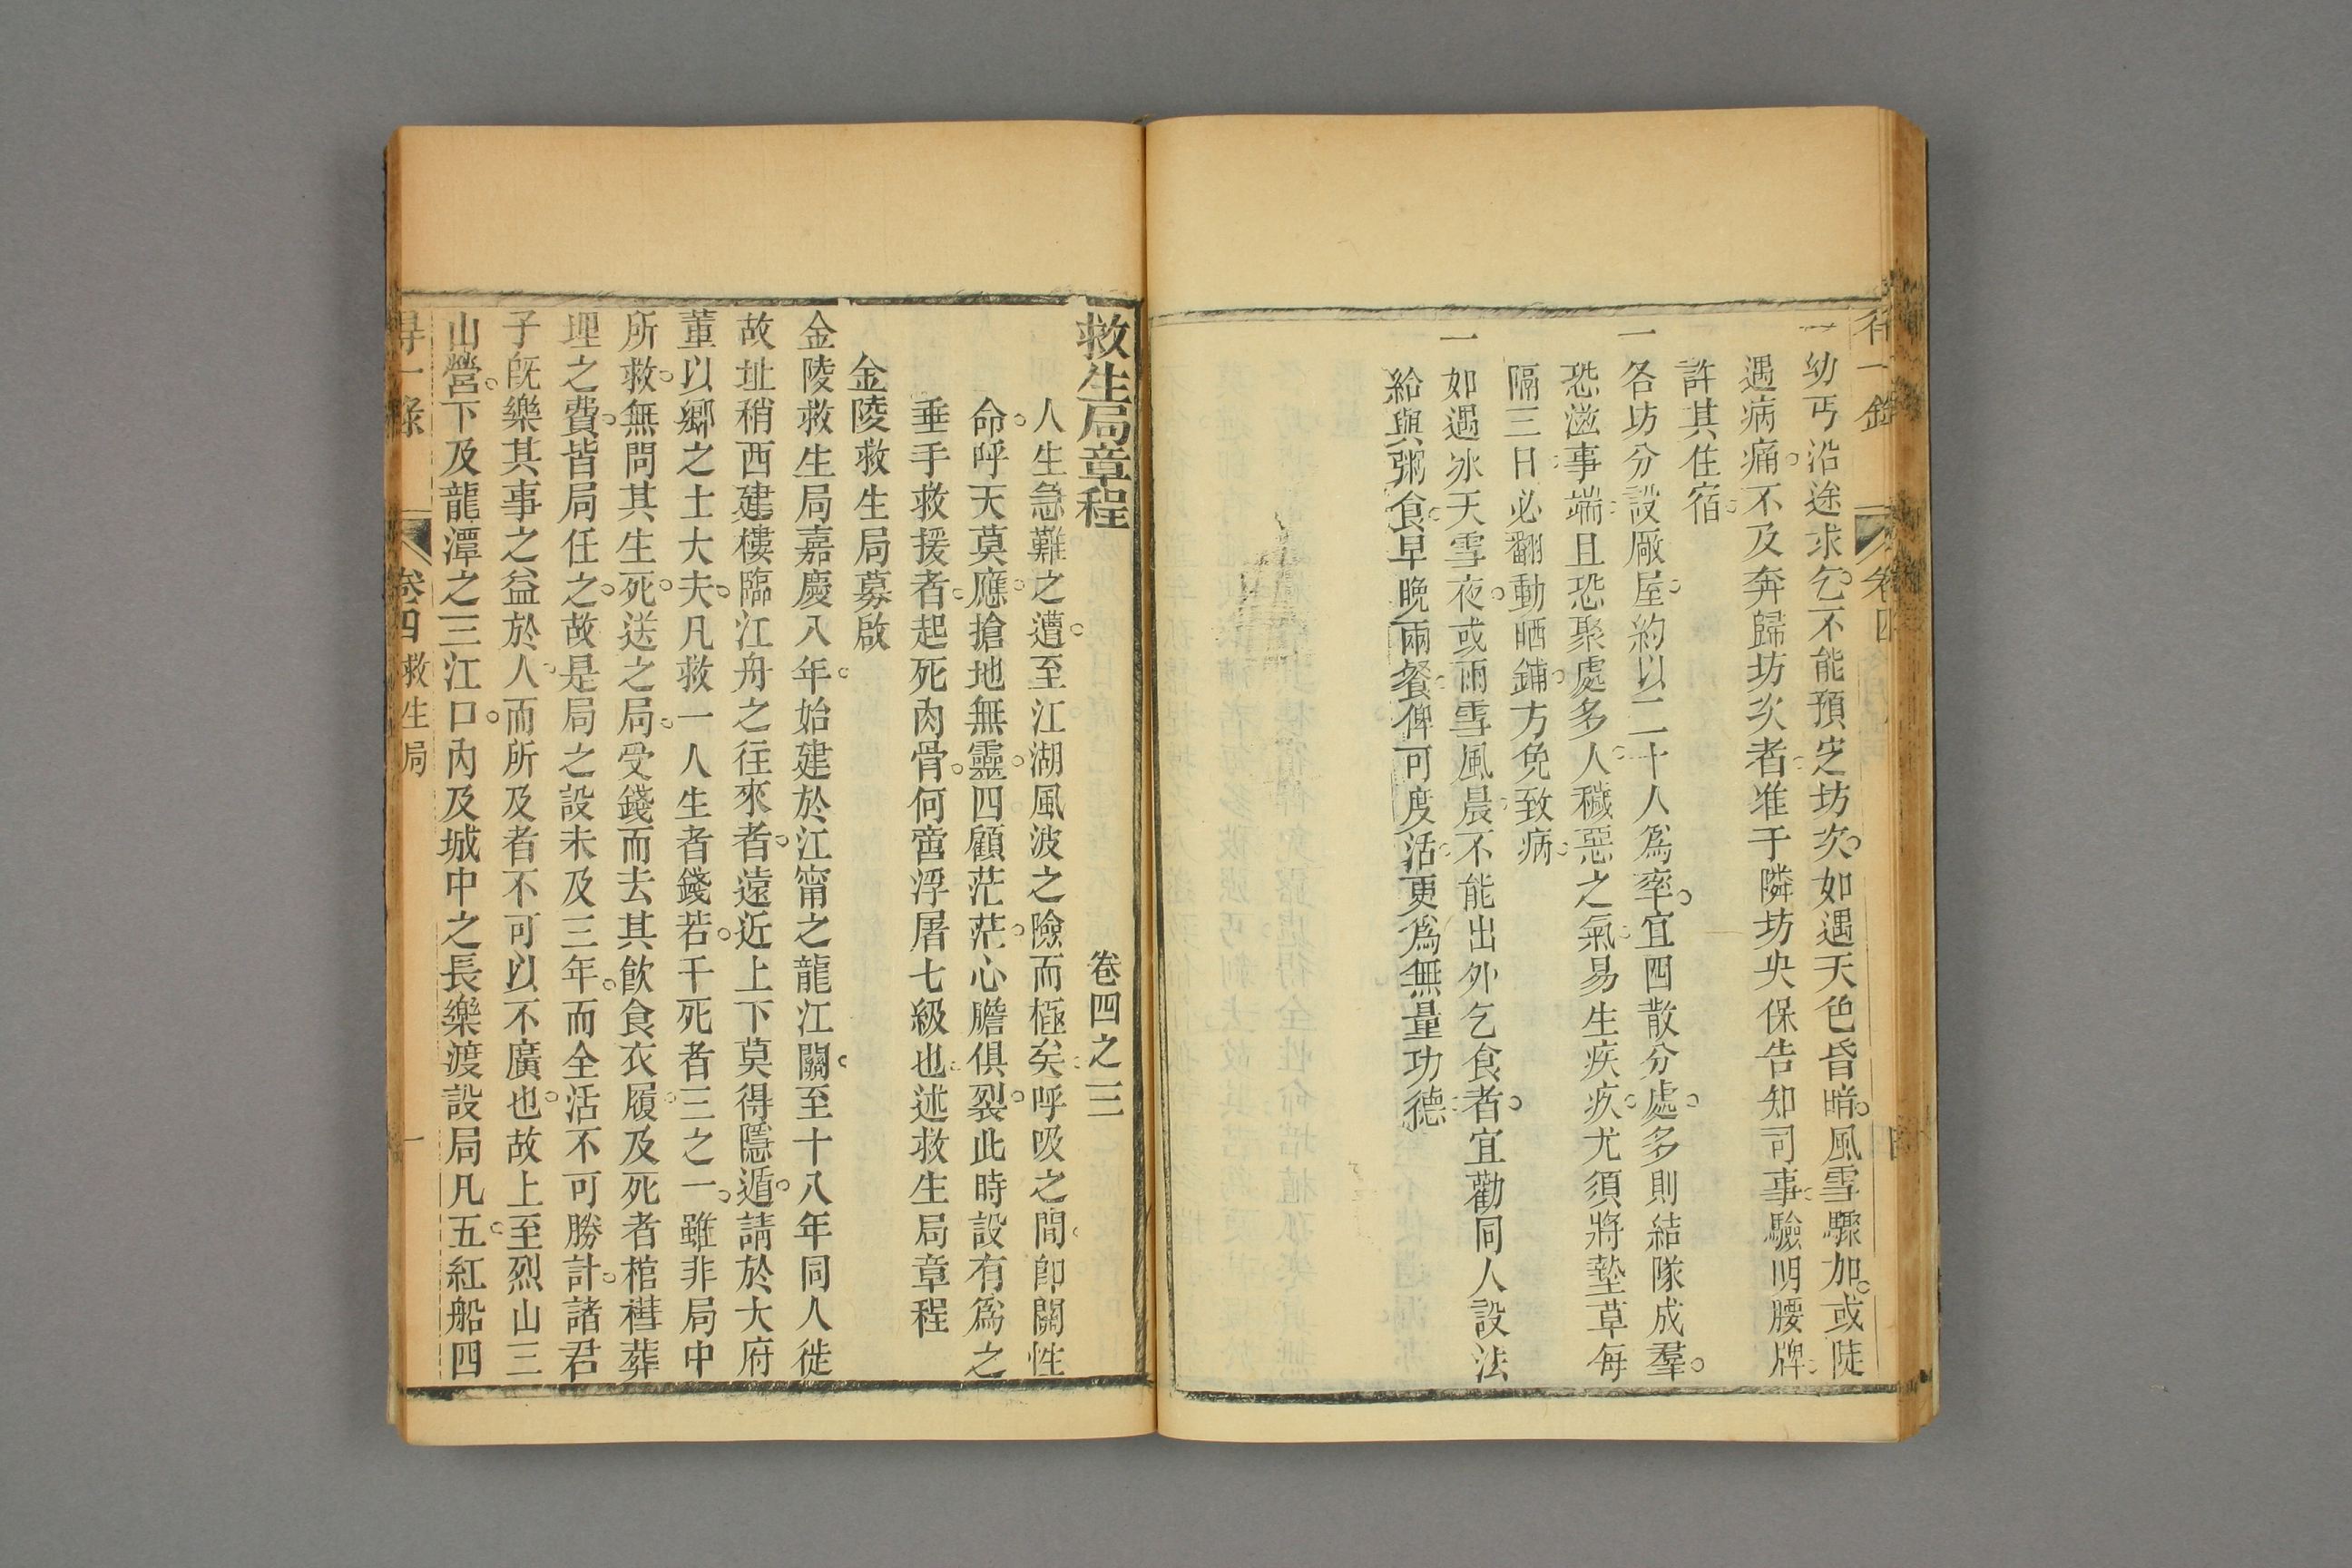 一幼丐沿途求乞。不能預定坊次。如遇天色昏暗。風雪驟加。或陡
遇病痛。不及奔歸坊次者。准于隣坊央保告知司事。驗明腰牌。
許其住宿。
一各坊分設厰屋。約以二十人爲率。宜四散分處。多則結隊成羣。
恐滋事端。且恐聚處多人。穢惡之氣。易生疾疚。尤須將墊草每
隔三日。必翻動晒鋪。方免致病。
一如遇冰天雪夜。或雨雪風晨。不能出外乞食者。宜勸同人設法
給與粥食。早晚兩餐。俾可度活。更爲無量功德。
卷四
救生局章程 卷四之三
人生急難之遭。至江湖風波之險而極矣。呼吸之間。卽關性
命。呼天莫應。搶地無靈。四顧茫茫。心膽俱裂。此時設有爲之
垂手救援者。起死肉骨。何啻浮屠七級也。述救生局章程
金陵救生局募啟
金陵救生局嘉慶八年。始建於江甯之龍江關。至十八年同人徙
故址稍西建樓臨江舟之往來者。遠近上下莫得隱遁。請於大府
董以鄉之士大夫。凡救一人生者錢若。干死者三之一。雖非局中
所救。無問其生死。送之局。受錢而去其飮食衣履。及死者棺槥葬
埋之費。皆局任之。故是局之設未及三年。而全活不可勝計。諸君
子旣樂其事之益於人。而所及者不可以不廣也。故上至烈山三
山營。下及龍潭之三江口。內及城中之長樂渡設局凡五。紅船四
得一錄 卷四 救生局 一